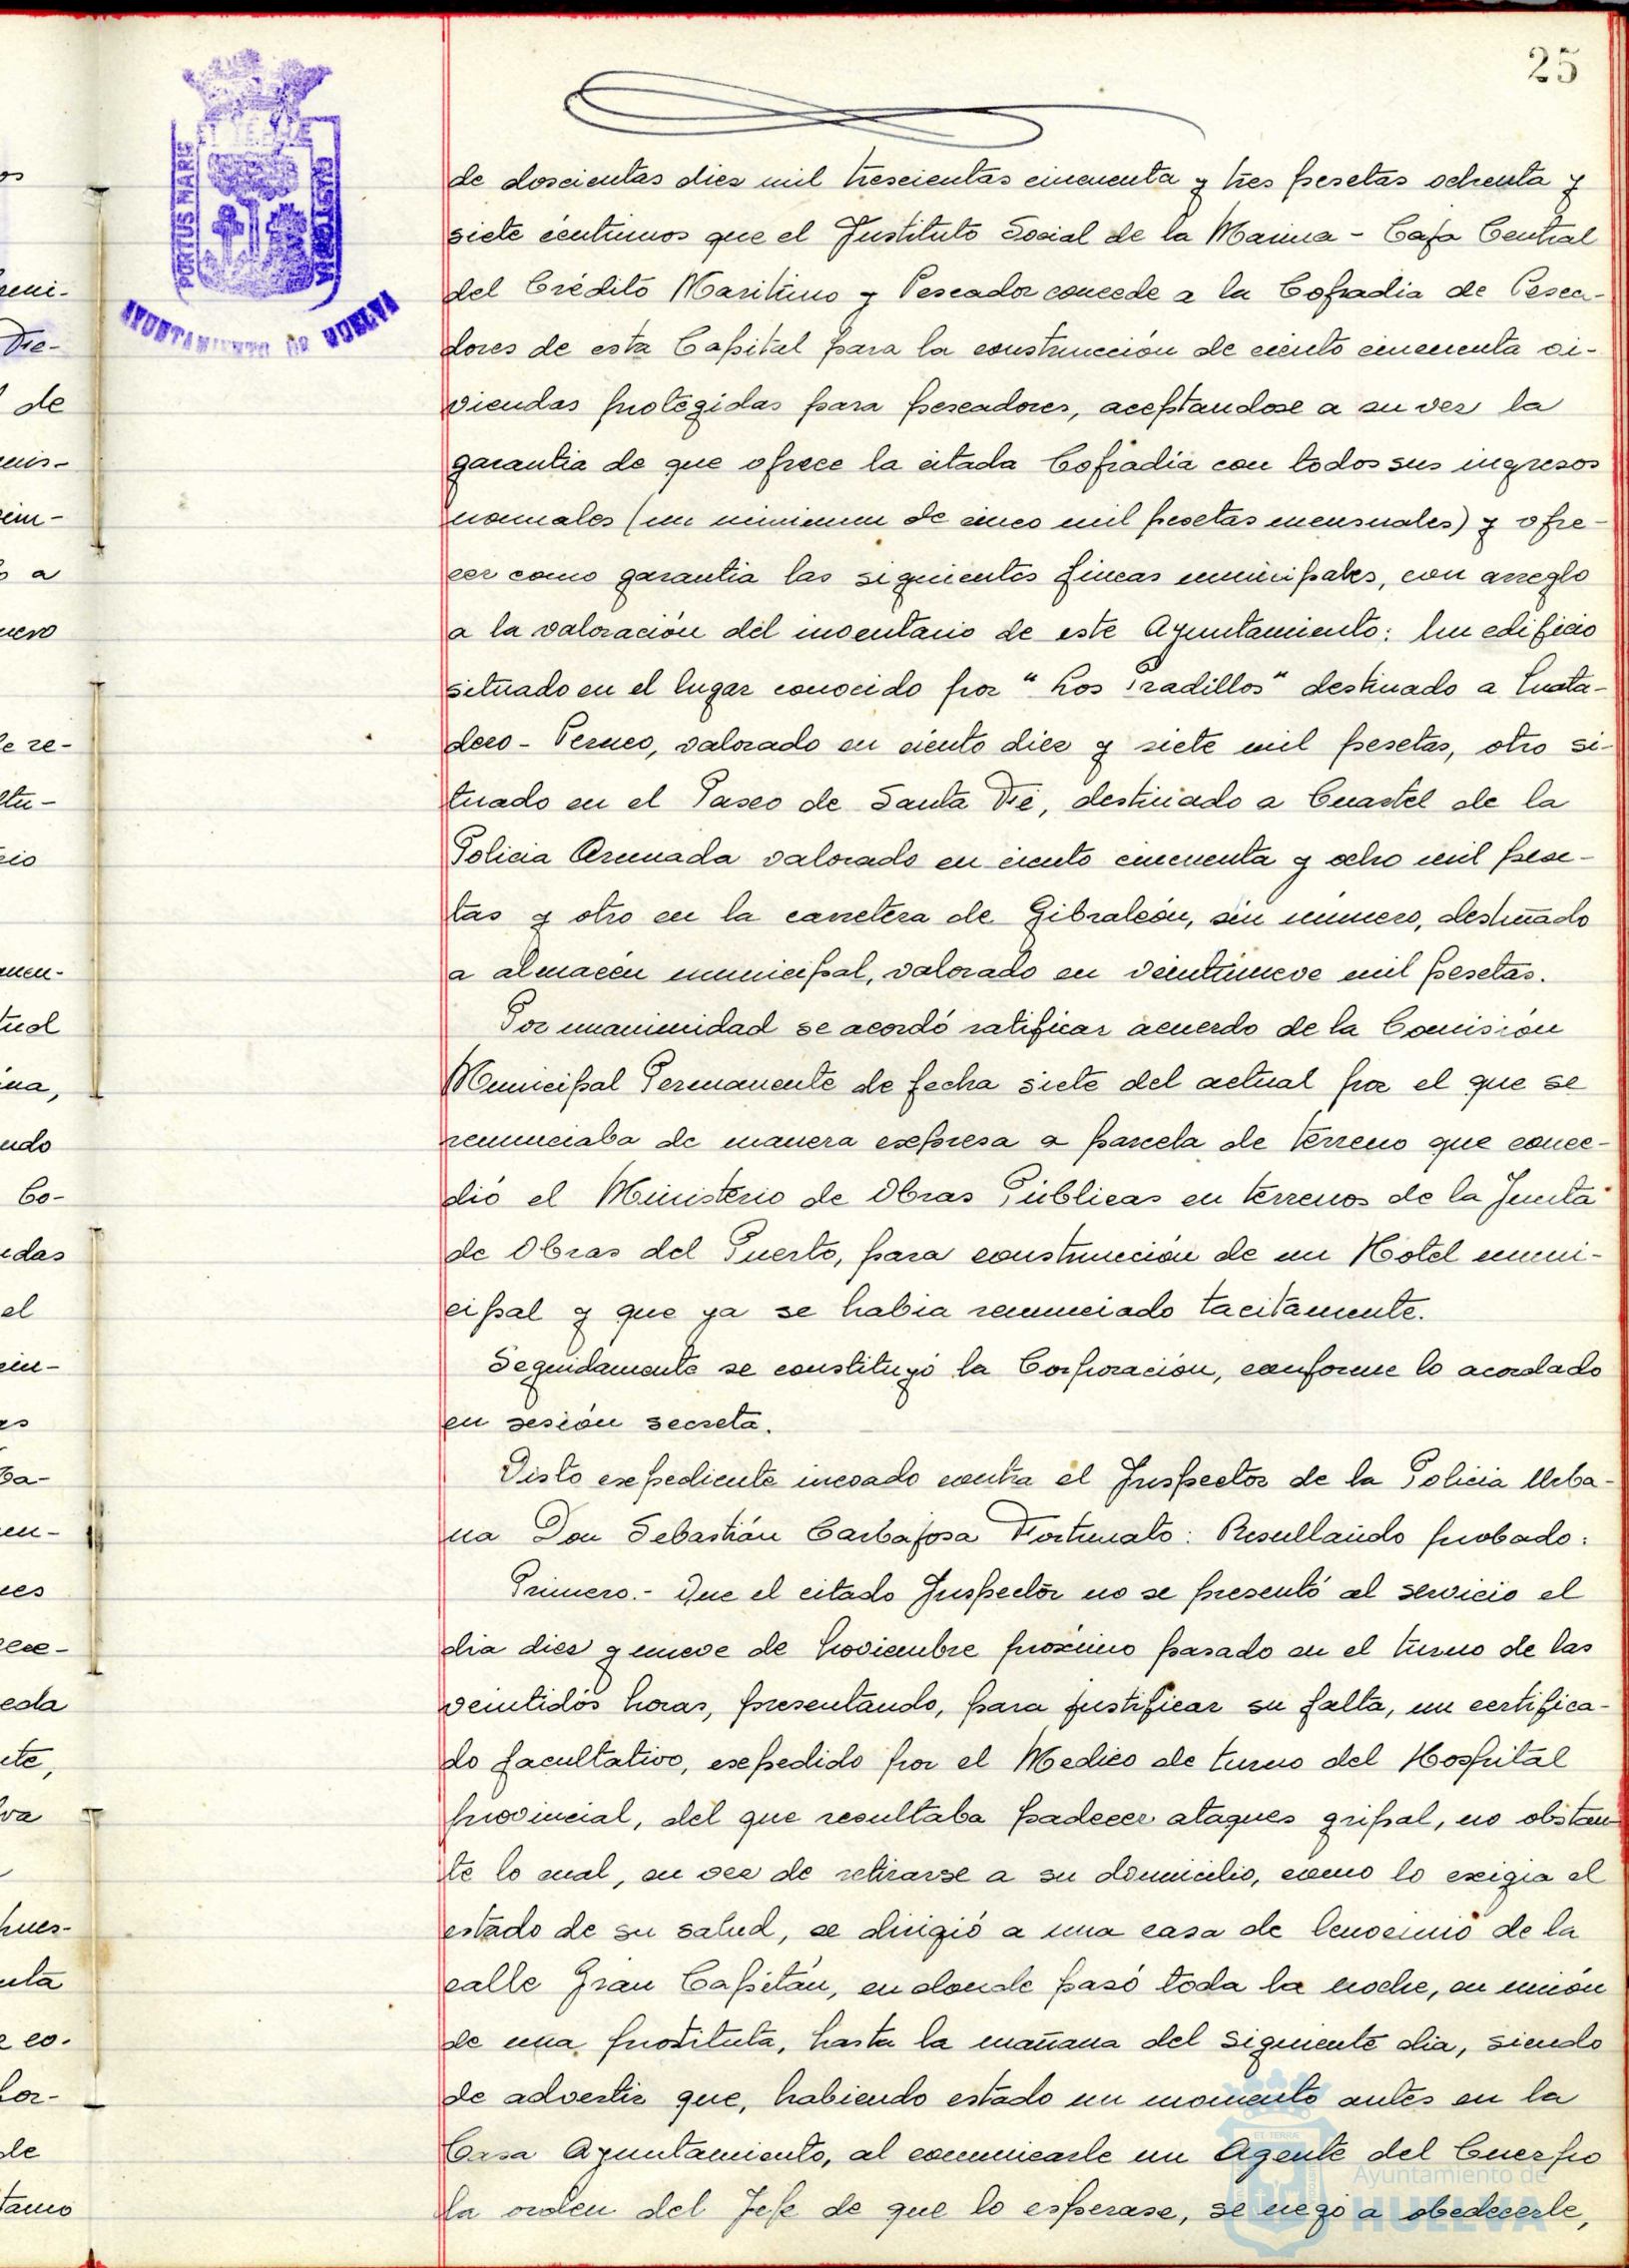 25
ET TERRE
PORTUS MARIS
CUSTODIA
AYUNTAMIENTO DE HUELVA
de doscientas diez mil trescientas cincuenta y tres pesetas ochenta y
siete céntimos que el Instituto Social de la Marina - Caja Central
del Crédito Maritimo y Pescador concede a la Cofradia de Pesca-
dores de esta Capital para la construcción de ciento cincuenta vi-
viendas protegidas para pescadores, aceptandose a su vez la
garantia de que ofrece la citada Cofradia con todos sus ingresos
normales (un minimun de cinco mil pesetas mensuales) y ofre-
cer como garantia las siguientes fincas municipales, con arreglo
a la valoración del inventario de este Ayuntamiento: Un edificio
situado en el lugar conocido por "Los Pradillos" destinado a Mata-
dero - Perneo, valorado en ciento diez y siete mil pesetas, otro si-
tuado en el Paseo de Santa Fé, destinado a Cuartel de la
Policia Armada valorado en ciento cincuenta y ocho mil pese-
tas y otro en la carretera de Gibraleón, sin número, destinado
a almacén municipal, valorado en veintinueve mil pesetas.
Por unanimidad se acordó ratificar acuerdo de la Comisión
Municipal Permanente de fecha siete del actual por el que se
renunciaba de manera expresa a parcela de terreno que conce-
dió el Ministerio de Obras Públicas en terrenos de la Junta
de Obras del Puerto, para construcción de un Hotel muni-
cipal y que ya se habia renunciado tacitamente.
Seguidamente se constituyó la Corporación, conforme lo acordado
en sesión secreta.
Visto expediente incoado contra el Inspector de la Policia Urba-
na Don Sebastián Carbajosa Fortunato: Resultando probado:
Primero.- Que el citado Inspector no se presentó al servicio el
dia diez y nueve de Noviembre próximo pasado en el turno de las
veintidós horas, presentando, para justificar su falta, un certifica-
do facultativo, expedido por el Medico de turno del Hospital
Provincial, del que resultaba padecer ataques gripal, no obstan-
te lo cual, en vez de retirarse a su domicilio, como lo exigia el
estado de su salud, se dirigió a una casa de lenocinio de la
calle Gran Capitán, en donde pasó toda la noche, en unión
de una prostituta, hasta la mañana del siguiente dia, siendo
de advertir que, habiendo estado un momento antes en la
Casa Ayuntamiento, al comunicarle un Agente del Cuerpo
la orden del Jefe de que lo esperase, se negó a obedecerle,
Ayuntamiento de
HUELVA